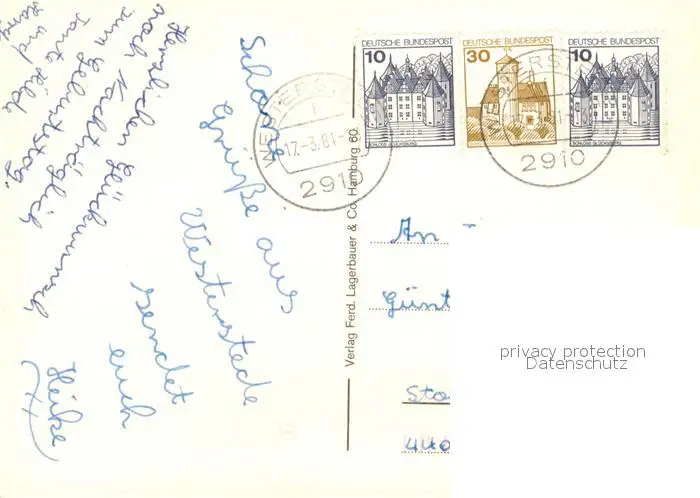 Schöne
Grüße aus
Westerstede
sendet
euch
Heike
Herzlichen Glückwunsch
nach Nachträglich
zum Geburtstag.
Tante Hilde
und
Verlag Ferd. Lagerbauer & Co. Hamburg 60
DEUTSCHE BUNDESPOST
10
SCHLOSS GLÜCKSBURG
DEUTSCHE BUNDESPOST
30
DEUTSCHE BUNDESPOST
10
SCHLOSS GLÜCKSBURG
WESTERST
17.-3.81
2910
ERS
2910
An
Günt
Sta
440
privacy protection
Datenschutz